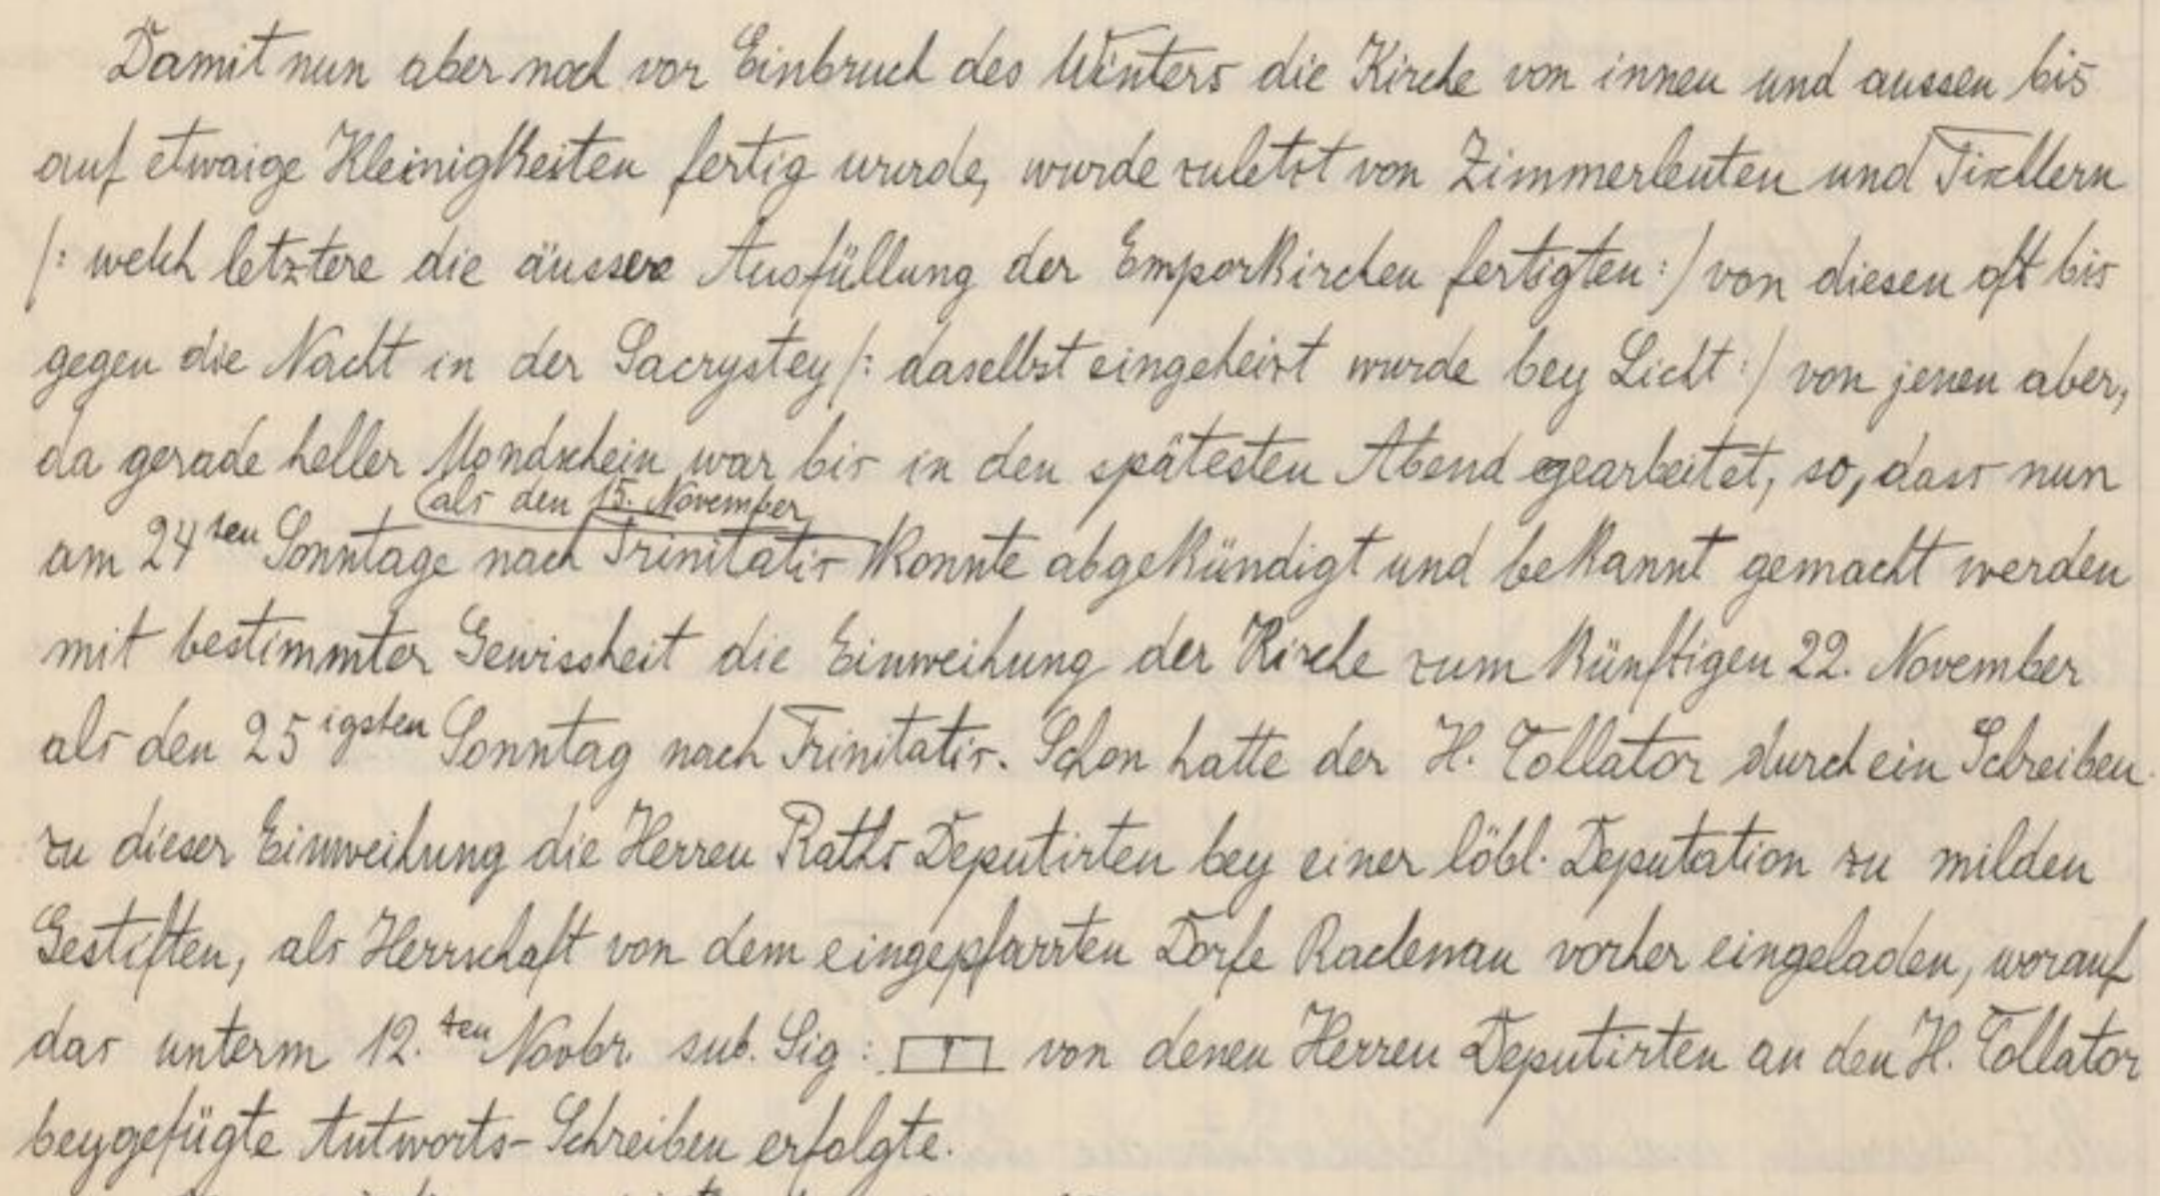 Damit nun aber noch vor Einbruch des Winters die Kirche von innen und aussen bis
auf etwaige Kleinigkeiten fertig wurde, wurde zuletzt von Zimmerleuten und Tischlern
/: welch letztere die äussere Ausfüllung der Emporkirchen fertigten :/ von diesen oft bis
gegen die Nacht in der Sacrystey /: daselbst eingeheizt wurde bey Licht :/ von jenen aber,
da gerade heller Mondschein war bis in den spätesten Abend gearbeitet, so, dass nun
(als den 15. November
am 24ten Sonntage nach Trinitatis konnte abgekündigt und bekannt gemacht werden
mit bestimmter Gewissheit die Einweihung der Kirche zum künftigen 22. November
als den 25igsten Sonntag nach Trinitatis. Schon hatte der H. Collator durch ein Schreiben
zu dieser Einweihung die Herren Raths Deputirten bey einer löbl. Deputation zu milden
Gestiften, als Herrschaft von dem eingepfarrten Dorfe Raclenau vorher eingeladen, worauf
das unterm 12.ten Novbr. sub. Sig: von denen Herren Deputirten an den H. Collator
beygefügte Antworts-Schreiben erfolgte.